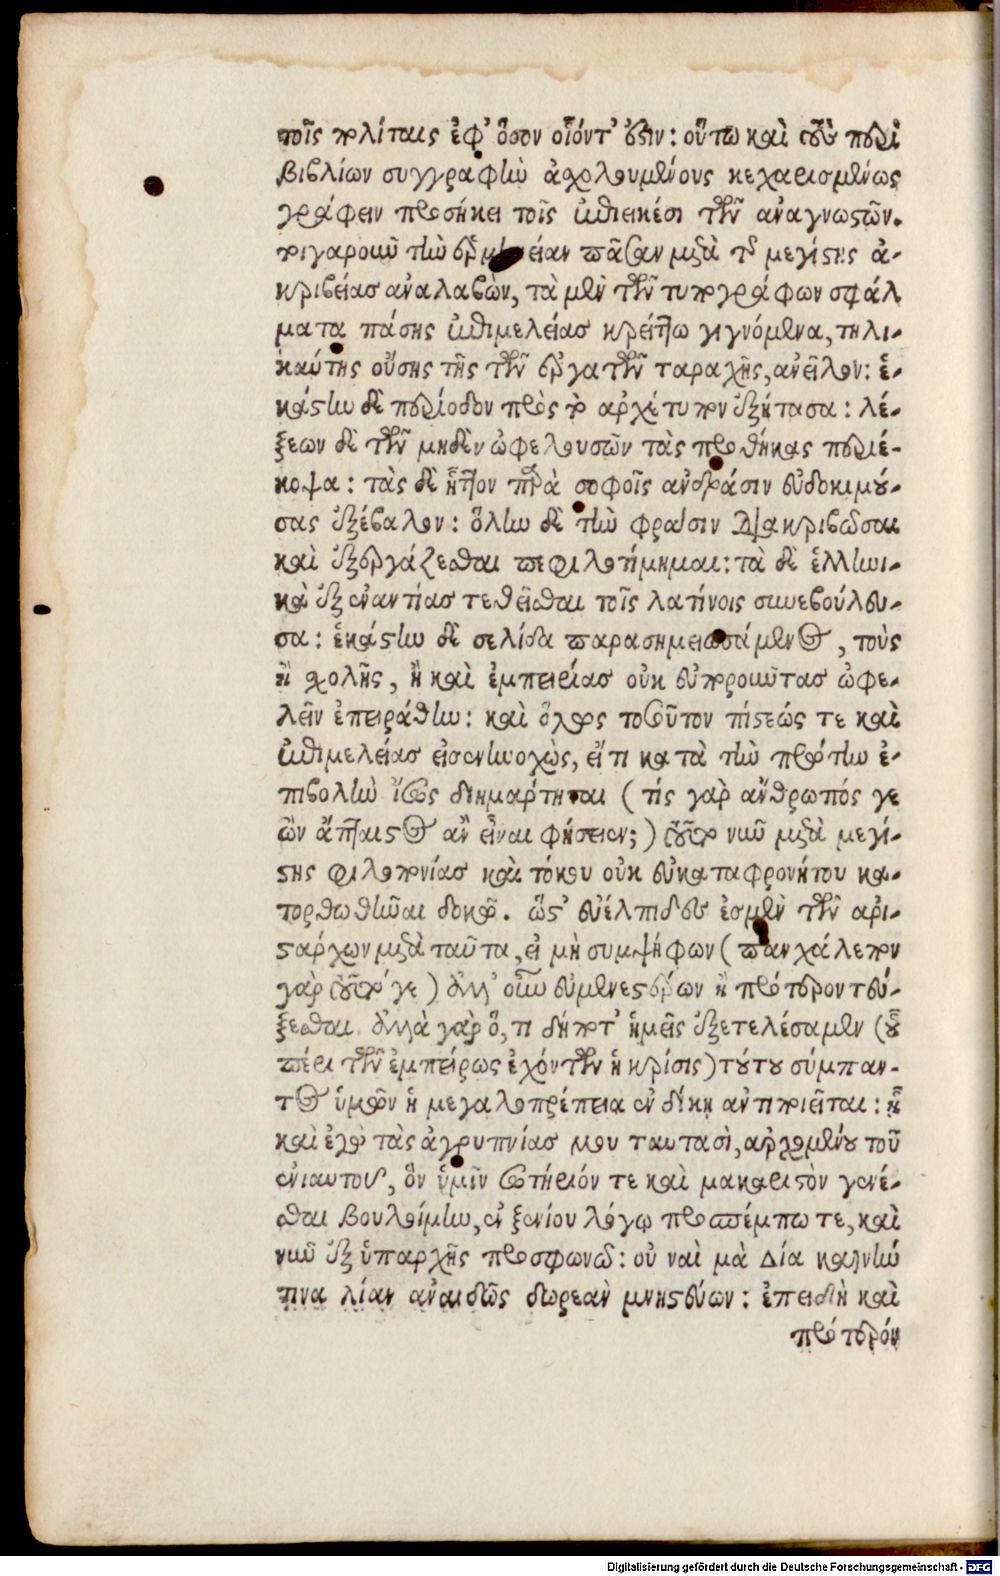 τοῖς πολίταις ἐφ' ὅσον οἷόντ' ὖσιν: οὕτω καὶ τοὺς περὶ
βιβλίων συγγραφὴν ἀσχολουμένους κεχαρισμένως
γράφειν προσήκει τοῖς ἐπιεικέσι τῶν ἀναγνωστῶν.
τοιγαροῦν τὴν ἑρμηνείαν πᾶσαν μετὰ τῆς μεγίστης ἀ-
κριβείας ἀναλαβὼν, τὰ μὲν τῶν τυπογράφων σφάλ
ματα πάσης ἐπιμελείας κρείττω γιγνόμενα, τηλι-
καύτης οὔσης τῆς τῶν ἐργατῶν ταραχῆς, ἀνεῖλον: ἑ-
κάστην δὲ περίοδον πρὸς τὸ ἀρχέτυπον ἐξήτασα: λέ-
ξεων δὲ τῶν μηδὲν ὠφελουσῶν τὰς προσθήκας περιέ-
κοψα: τὰς δὲ ἧττον παρὰ σοφοῖς ἀνδράσιν εὐδοκιμού-
σας ἐξέβαλον: ὅλην δὲ τὴν φράσιν διακριβῶσαι
καὶ ἐξεργάζεσθαι πεφιλοτίμημαι: τὰ δὲ ἑλληνι-
κὰ ἐξ ἐναντίας τεθεῖσθαι τοῖς λατίνοις συνεβούλευ-
σα: ἑκάστην δὲ σελίδα παρασημειωσάμενος, τοὺς
ἢ σχολῆς, ἢ καὶ ἐμπειρίας οὐκ εὐποροῦντας ὠφε-
λεῖν ἐπειράθην: καὶ ὅλως τοσοῦτον πίστεώς τε καὶ
ἐπιμελείας εἰσενηνοχὼς, εἴ τι κατὰ τὴν πρώτην ἐ-
πιβολὴν ἴσως διημάρτηται (τίς γὰρ ἄνθρωπός γε
ὢν ἄπταιστος ἂν εἶναι φήσειεν;) τοῦτο νῦν μετὰ μεγί-
στης φιλοπονίας καὶ τόκου οὐκ εὐκαταφρονήτου κα-
τορθωθῆναι δοκῶ. ὥστ' εὐέλπιδες ἐσμὲν τῶν ἀρι-
στάρχων μετὰ ταῦτα, εἰ μὴ συμψήφων (πανχάλεπον
γὰρ τοῦτό γε) ἀλλ' οὖν εὐμενεστέρων ἢ πρότερον τεύ-
ξεσθαι. ἀλλὰ γὰρ ὅ, τι δήποτ' ἡμεῖς ἐξετελέσαμεν (οὗ
πέρι τῶν ἐμπείρως ἐχόντων ἡ κρίσις) τούτου σύμπαν-
τος ὑμῶν ἡ μεγαλοπρέπεια ἐν δίκῃ ἀντιποιεῖται: ᾗ
καὶ ἐγὼ τὰς ἀγρυπνίας μου ταυτασὶ, ἀρχομένου τοῦ
ἐνιαυτοῦ, ὃν ὑμῖν σωτήριόν τε καὶ μακαριστὸν γενέ-
σθαι βουλοίμην, ἐν ξενίου λόγῳ προπέμπω τε, καὶ
νῦν ἐξ ὑπαρχῆς προσφωνῶ: οὐ ναὶ μὰ Δία καινήν
τινα λίαν ἀναιδῶς δωρεὰν μνηστεύων: ἐπειδὴ καὶ
πρότερόν